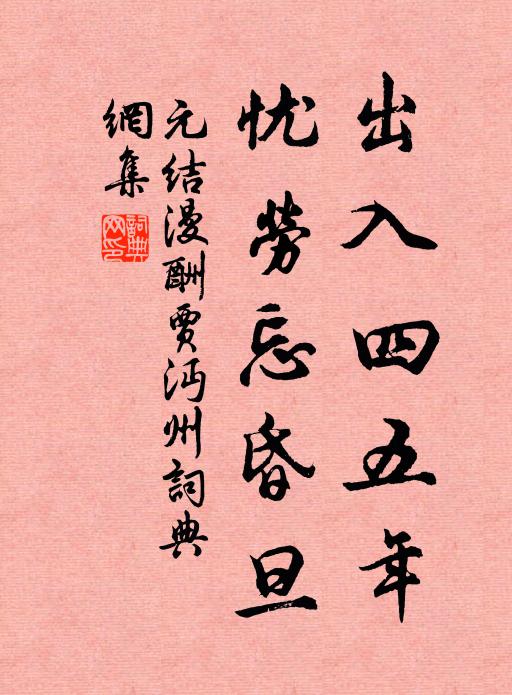 出入四五年
忧勞忘昏旦
元结漫酬贾沔州詞典
網集
詞典
网印